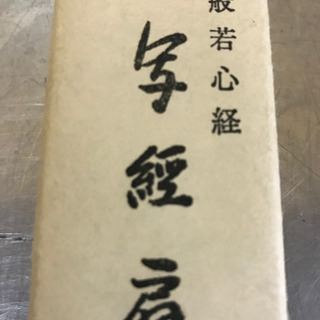 般若心経
写經扇